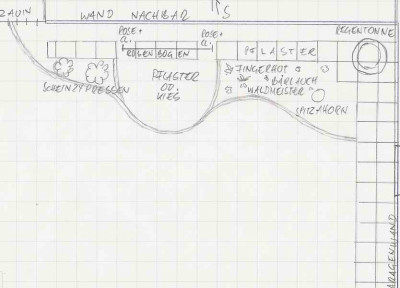 ZAUN
WAND NACHBAR
S
ROSE+
ROSE+
REGENTONNE
ROSENBOGEN
PFLASTER
PFLASTER
OD.
KIES
FINGERHUT
BÄRLAUCH
"WALDMEISTER"
SCHEINZYPRESSEN
SPITZAHORN
GARAGENWAND